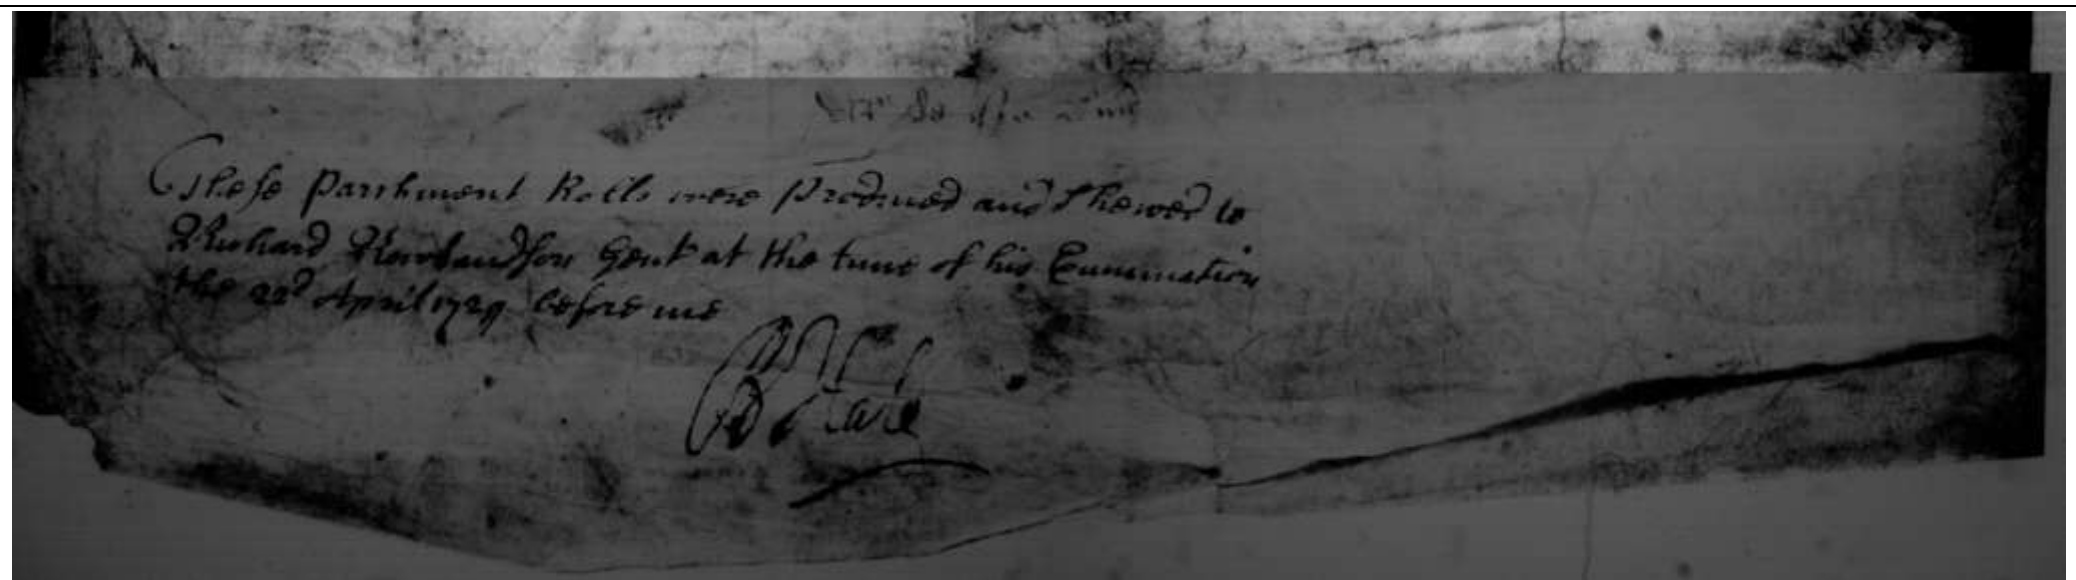 These Parchment Rolls were Produced and Shewed to
Richard Rowlandson Gent at the time of his Examination
the 22d April 1729 before me